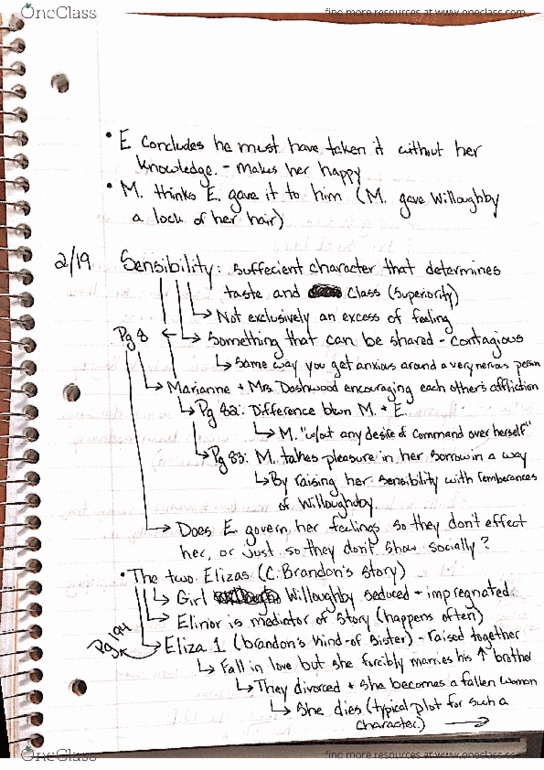 OneClass
find more resources at www.oneclass.com
• E concludes he must have taken it without her
knowledge. - makes her happy
• M. thinks E. gave it to him (M. gave Willoughby
a lock of her hair)
2/19 Sensibility: suffecient character that determines
taste and class (superiority)
↳ Not exclusively an excess of feeling
Pg 8 ← ↳ Something that can be shared - contagious
↳ Same way you get anxious around a very nervous person
↳ Marianne + Mrs Dashwood encouraging each others affliction
↳ Pg 82: Difference btwn M. + E.
↳ M. "w/out any desire of command over herself"
↳ Pg 83: M. takes pleasure in her sorrow in a way
↳ By raising her sensibility with remberances
of Willoughby
↳ Does E govern her feelings so they don't effect
her, or just so they don't show socially?
• The two Elizas (C. Brandon's story)
↳ Girl Willoughby seduced + impregnated
↳ Elinor is mediator of story (happens often)
Pg 194 ↳ Eliza 1 (brandon's kind-of sister) - raised together
↳ Fall in love but she forcibly marries his ↑ brother
↳ They divorced + she becomes a fallen woman
↳ She dies (typical plot for such a
character.) →
OneClass
find more resources at www.oneclass.com